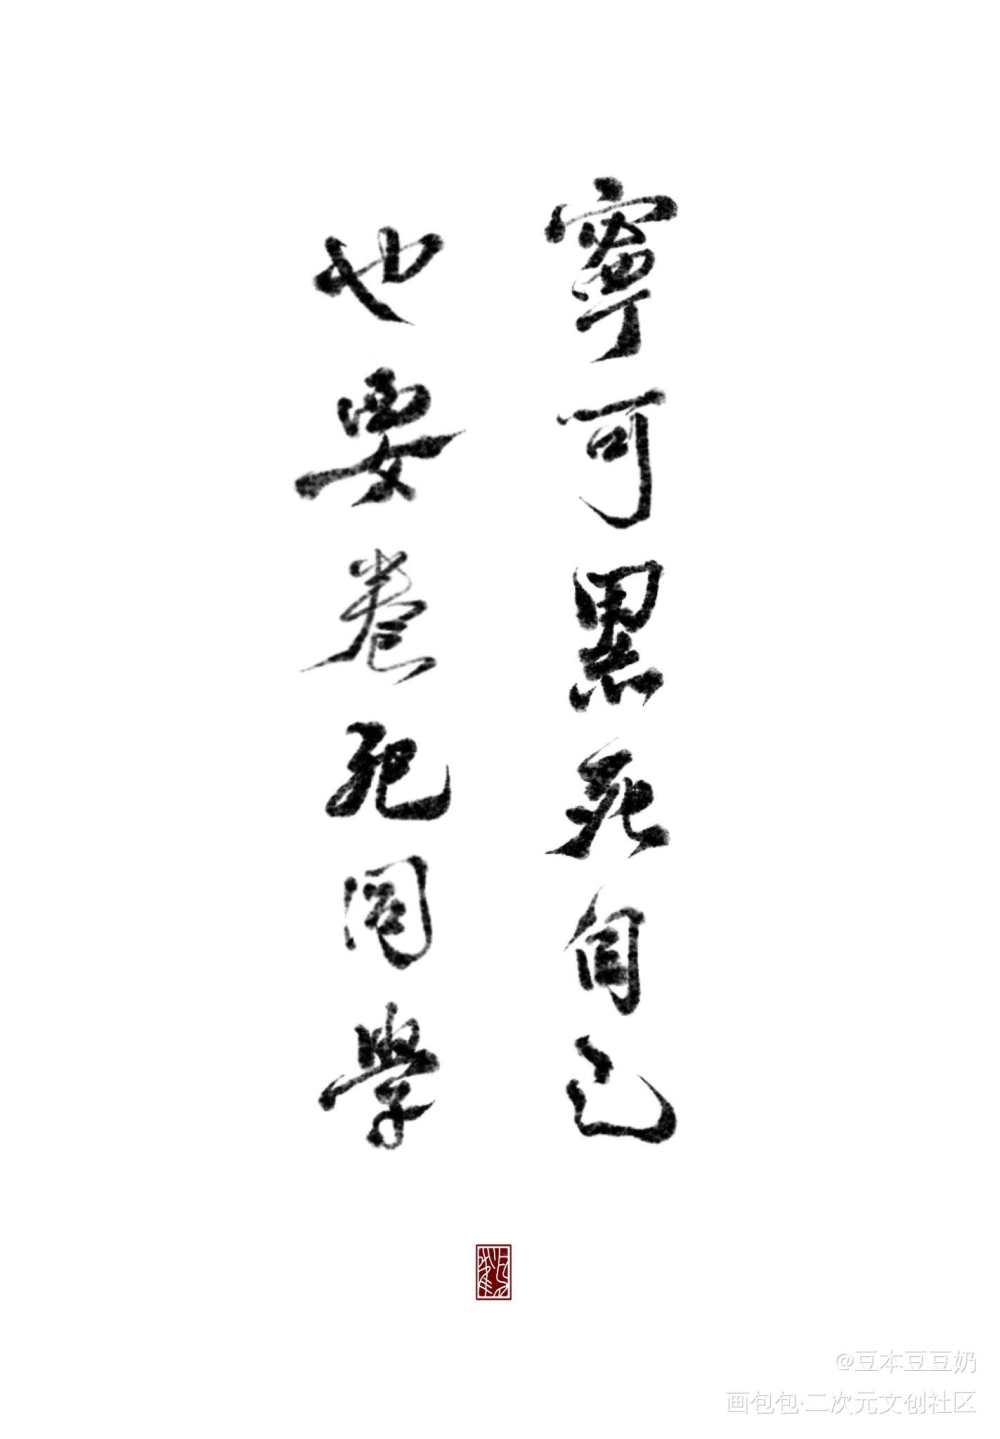 寧可累死自己
也要卷死同學
@豆本豆豆奶
画包包·二次元文创社区